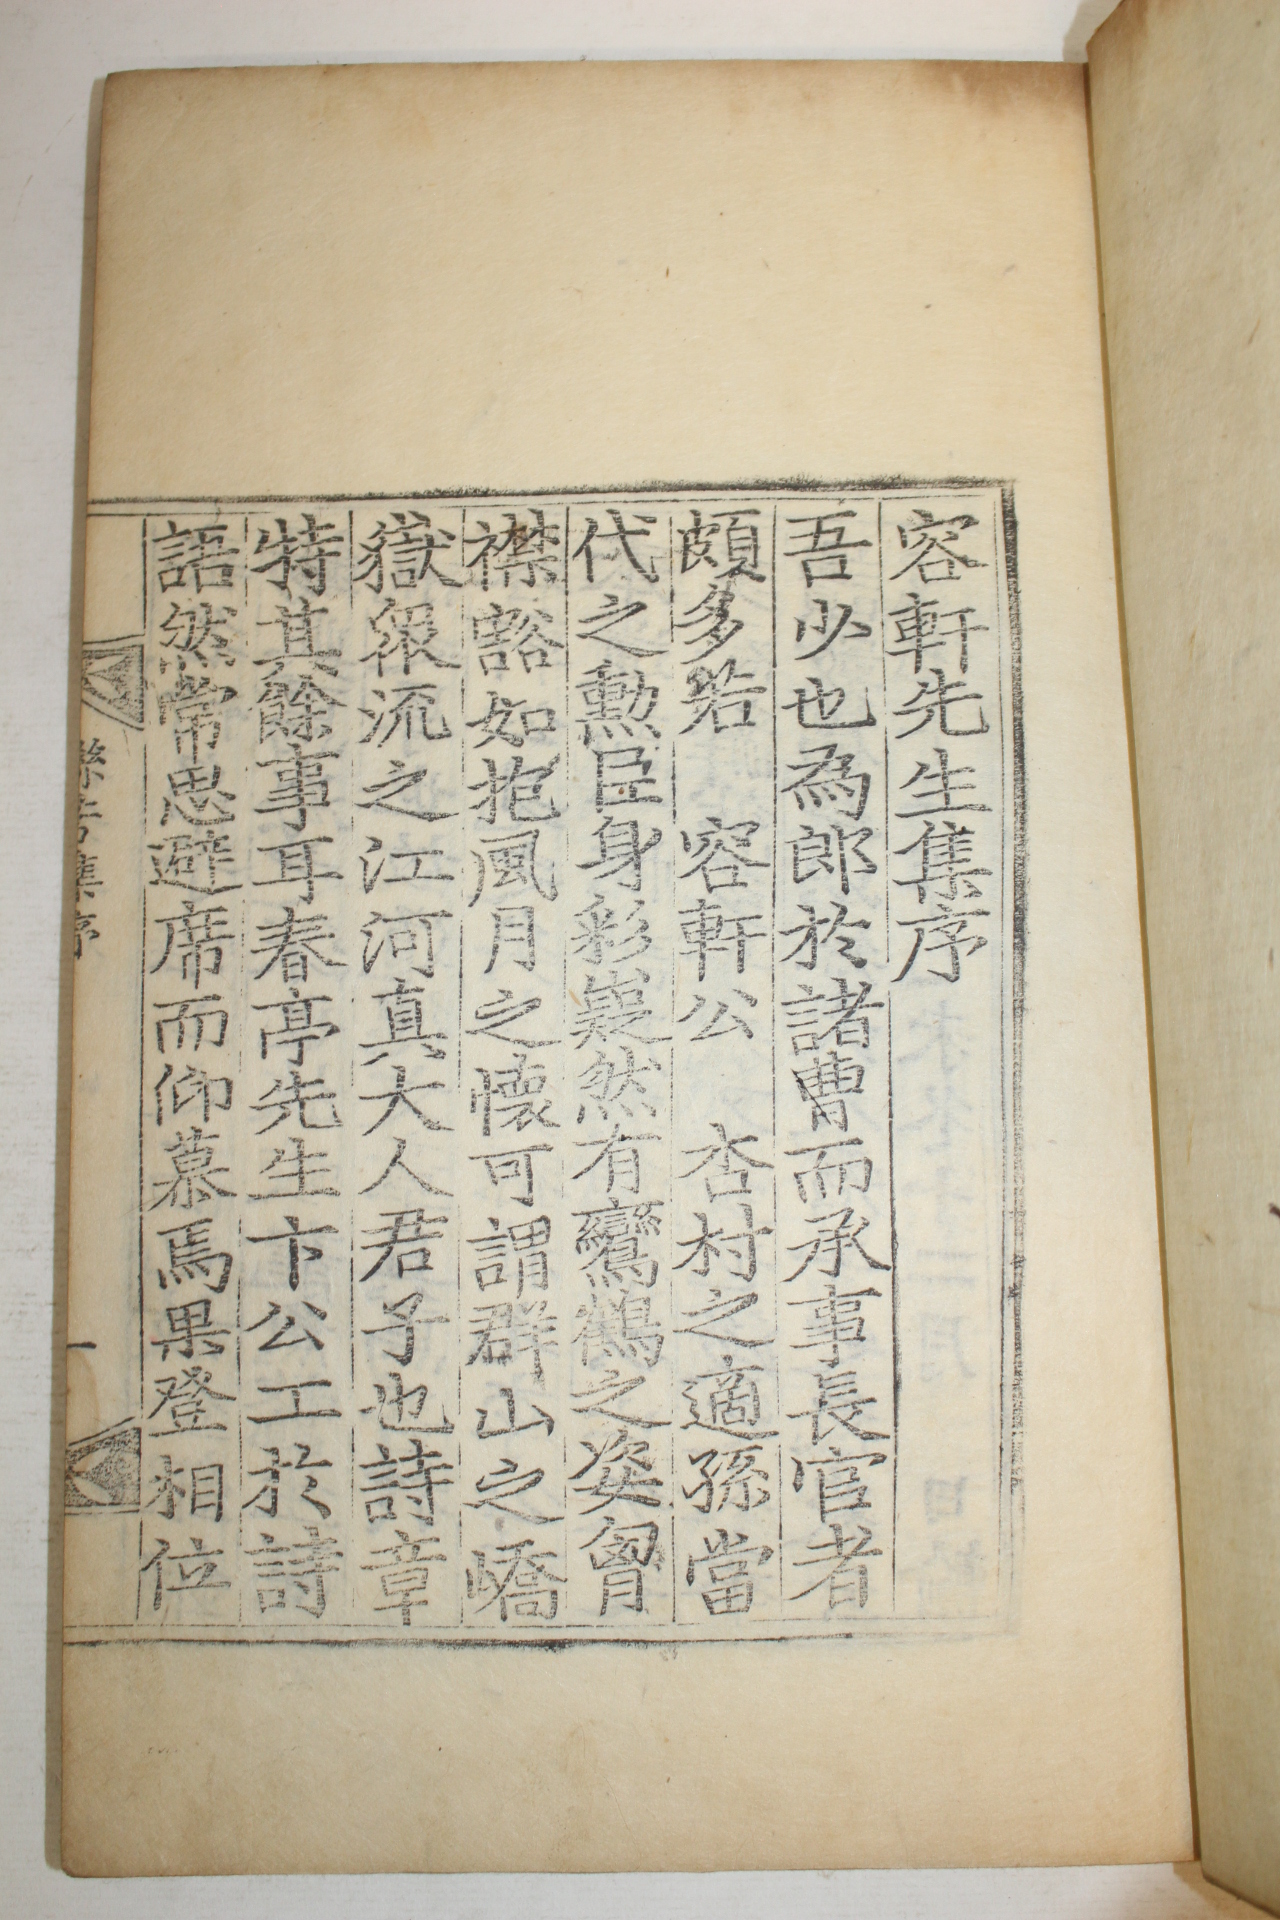 容軒先生集序
吾少也為郎於諸曹而承事長官者
頗多若 容軒公 杏村之適孫當
代之勳臣身彩嶷然有鸞鶴之姿胷
襟豁如抱風月之懷可謂群山之嶠
嶽衆流之江河真大人君子也詩章
特其餘事耳春亭先生卞公工於詩
語然常思避席而仰慕焉果登相位
集序
一